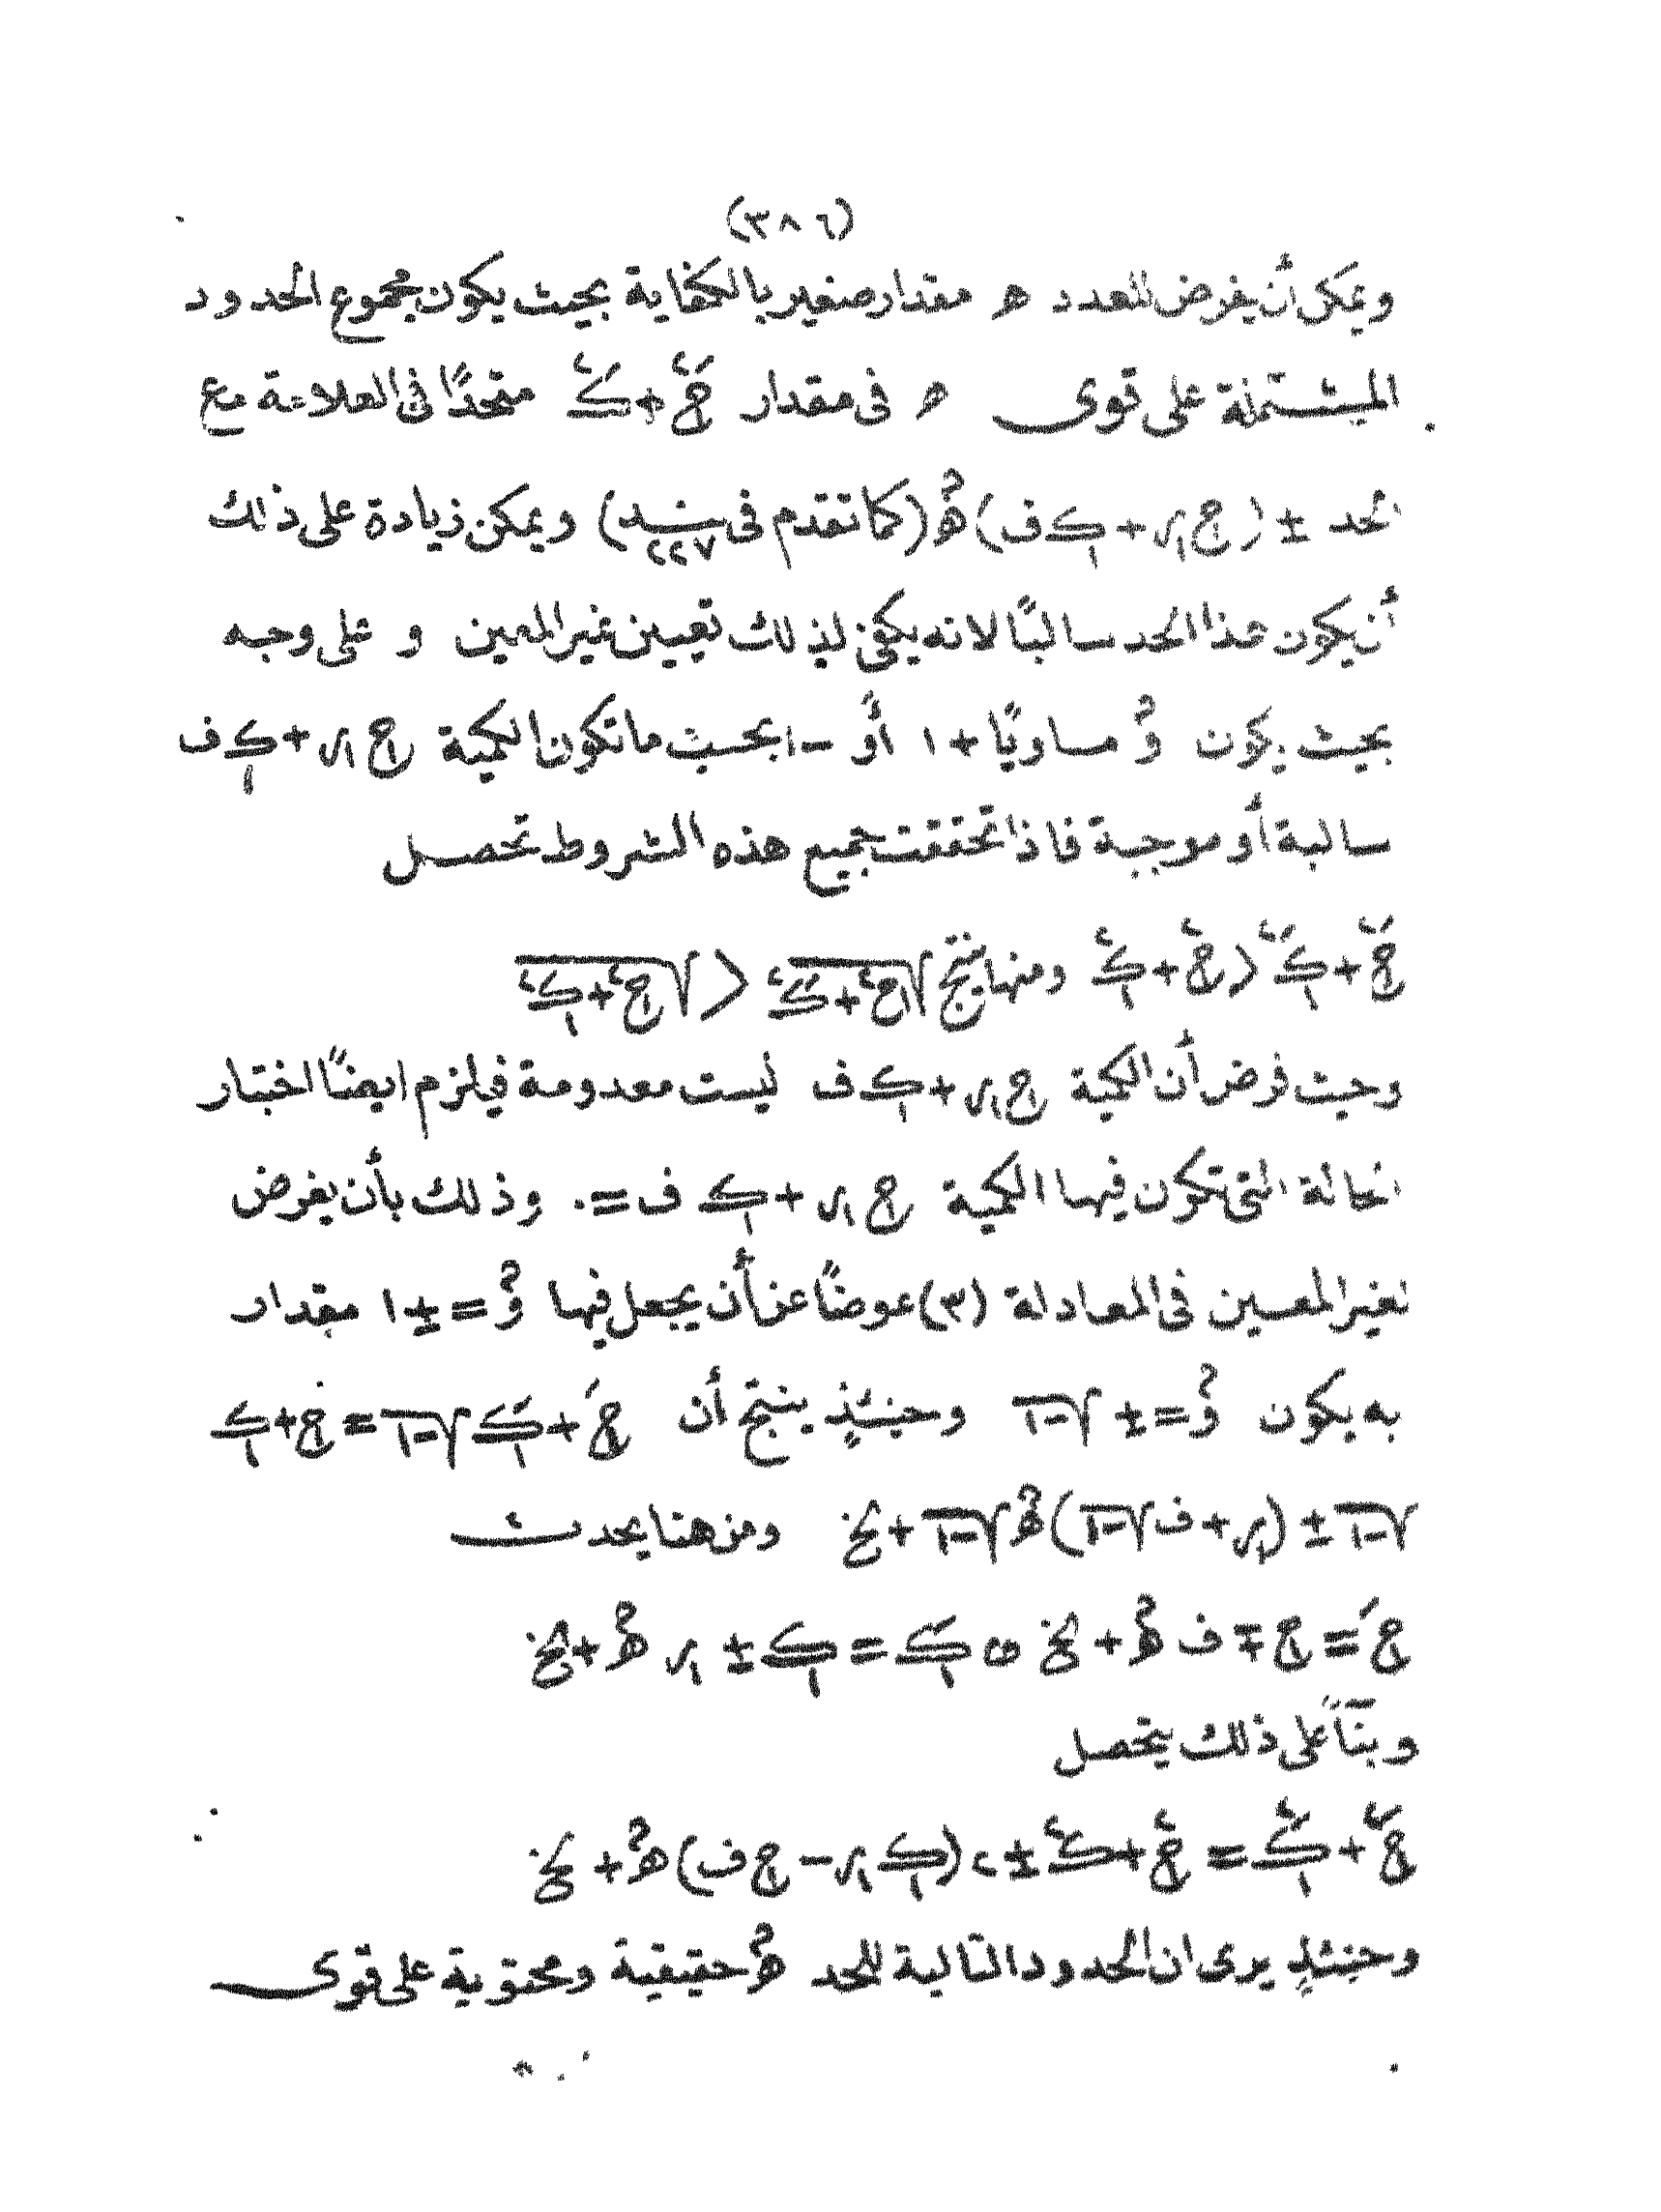 (٣٨٦)
ويمكن أن يفرض للعدد ﻫ مقدار صغير بالكفاية بحيث يكون مجموع الحدود
المشتملة على قوى ﻫ فى مقدار حَ٢ + كَ٢ متحدًا فى العلامة مع
الحد ± (ح س + ك ف) ﻫم (كما تقدم فى بند ٢٢٧) ويمكن زيادة على ذلك
أن يكون هذا الحد سالبًا لانه يكفى لذلك تعيين غير المعين و على وجه
بحيث يكون وم مساويًا + ١ أو - ١ بحسب ما تكون الكمية ح س + ك ف
سالبة أو موجبة فاذا تحققت جميع هذه الشروط تحصل
حَ٢ + كَ٢ < ح٢ + ك٢ ومنها ينتج √حَ٢ + كَ٢ < √ح٢ + ك٢
وحيث فرض أن الكمية ح س + ك ف ليست معدومة فيلزم ايضًا اختبار
الحالة التى تكون فيها الكمية ح س + ك ف = ٠ وذلك بأن يفرض
لغير المعين فى المعادلة (٣) عوضًا عن أن يجعل فيها وم = ± ١ مقدار
به يكون وم = ± √-١ وحينئذٍ ينتج أن حَ + كَ √-١ = ح + ك
√-١ ± (س + ف √-١) ﻫم √-١ + الخ ومن هنا يحدث
حَ = ح ∓ ف ﻫم + الخ و كَ = ك ± س ﻫم + الخ
وبنآءً على ذلك يتحصل
حَ٢ + كَ٢ = ح٢ + ك٢ ± ٢ (ك س - ح ف) ﻫم + الخ
وحينئذٍ يرى ان الحدود التالية للحد ﻫم حقيقية ومحتوية على قوى